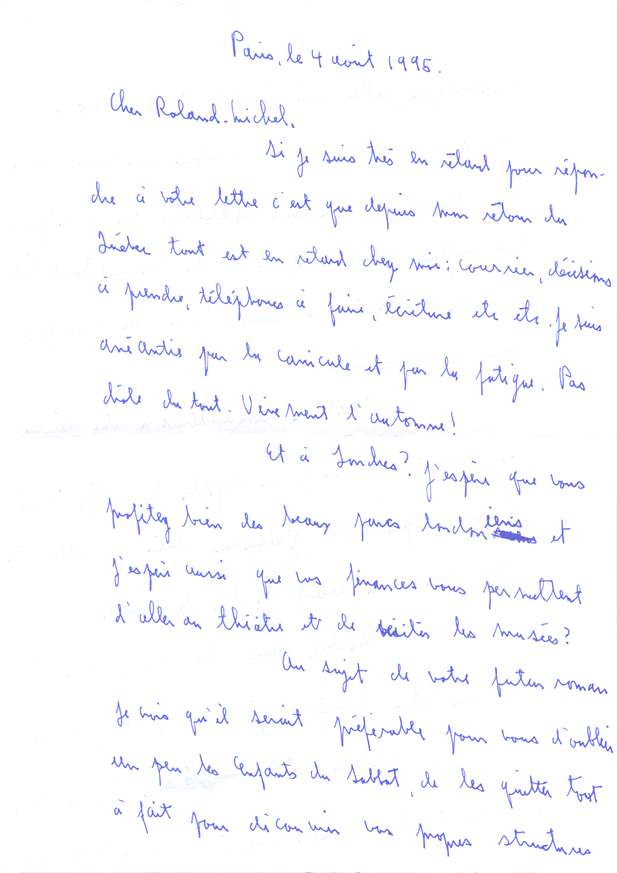 Paris, le 4 août 1995.
Cher Roland-Michel,
Si je suis très en retard pour répon-
dre à votre lettre c'est que depuis mon retour du
Québec tout est en retard chez moi : courrier, décisions
à prendre, téléphones à faire, écriture etc etc. Je suis
anéantie par la canicule et par la fatigue. Pas
drôle du tout. Vivement l'automne !
Et à Londres ? J'espère que vous
profitez bien des beaux parcs londoniens et
j'espère aussi que vos finances vous permettent
d'aller au théâtre et de visiter les musées ?
Au sujet de votre futur roman
je crois qu'il serait préférable pour vous d'oublier
un peu les Enfants du Sabbat, de les quitter tout
à fait pour découvrir vos propres structures